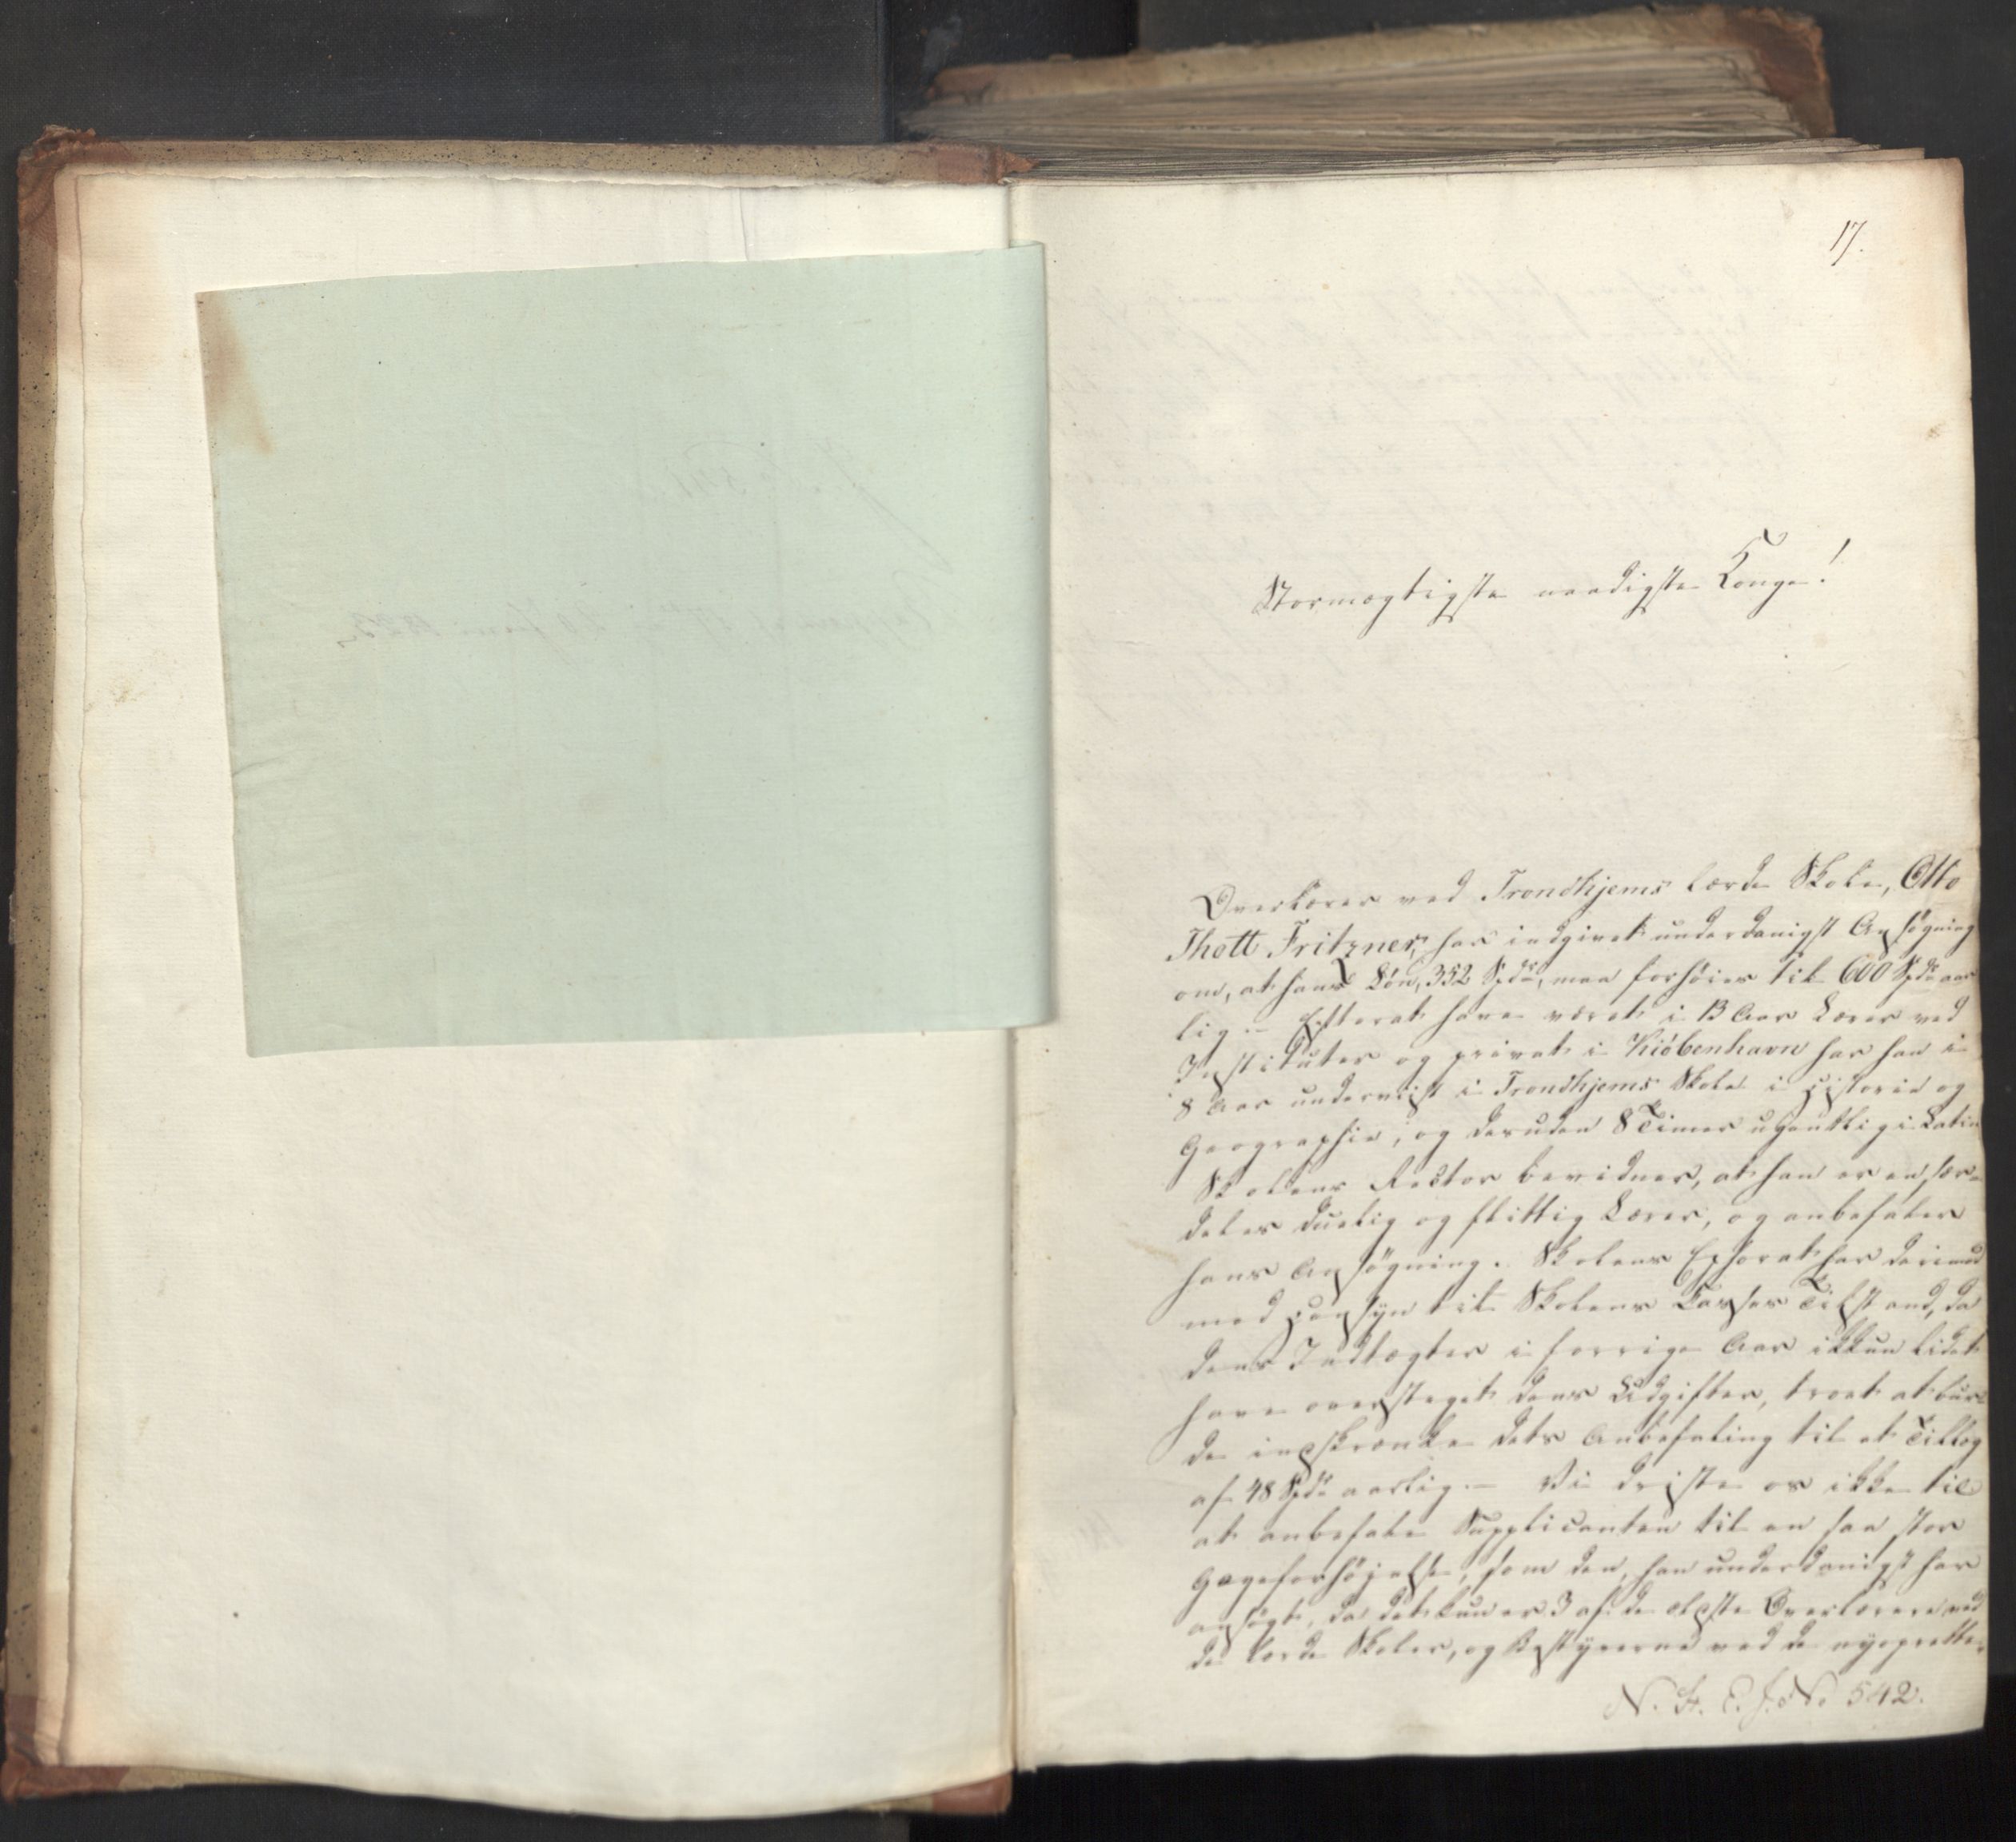 17.
Stormægtigste naadigste Konge!
Overlærer ved Trondhjems lærde Skole, Otto
Thott Fritzner, har indgivet underdanigst Ansøgning
om, at hans Løn, 352 Spdr, maa forhøies til 600 Spdr aar-
lig. – Efterat have været i 13 Aar Lærer ved
Instituter og privat i Kiöbenhavn har han i
8 Aar underviist i Trondhjems Skole i Historie og
Geographie, og desuden 8 Timer ugentlig i Latin
Skolens Rector bevidner, at han er en sær-
deles duelig og flittig Lærer, og anbefaler
hans Ansøgning. Skolens Ephorat har derimod
med Hensyn til Skolens Casses Tilstand, da
dens Indtægter i forrige Aar ikkun lidet
have oversteget dens Udgifter, troet at bur-
de indskrænke dets Anbefaling til et Tillæg
af 48 Spdr aarlig. – Vi driste os ikke til
at anbefale Supplicanten til en saa stor
Gageforhøjelse, som den, han underdanigst har
ansøgt, da det kun er 3 af de ældste Overlærere ved
de lærde Skoler, og Bestyrerne ved de nyoprette-
N. St. E. J. No 542.